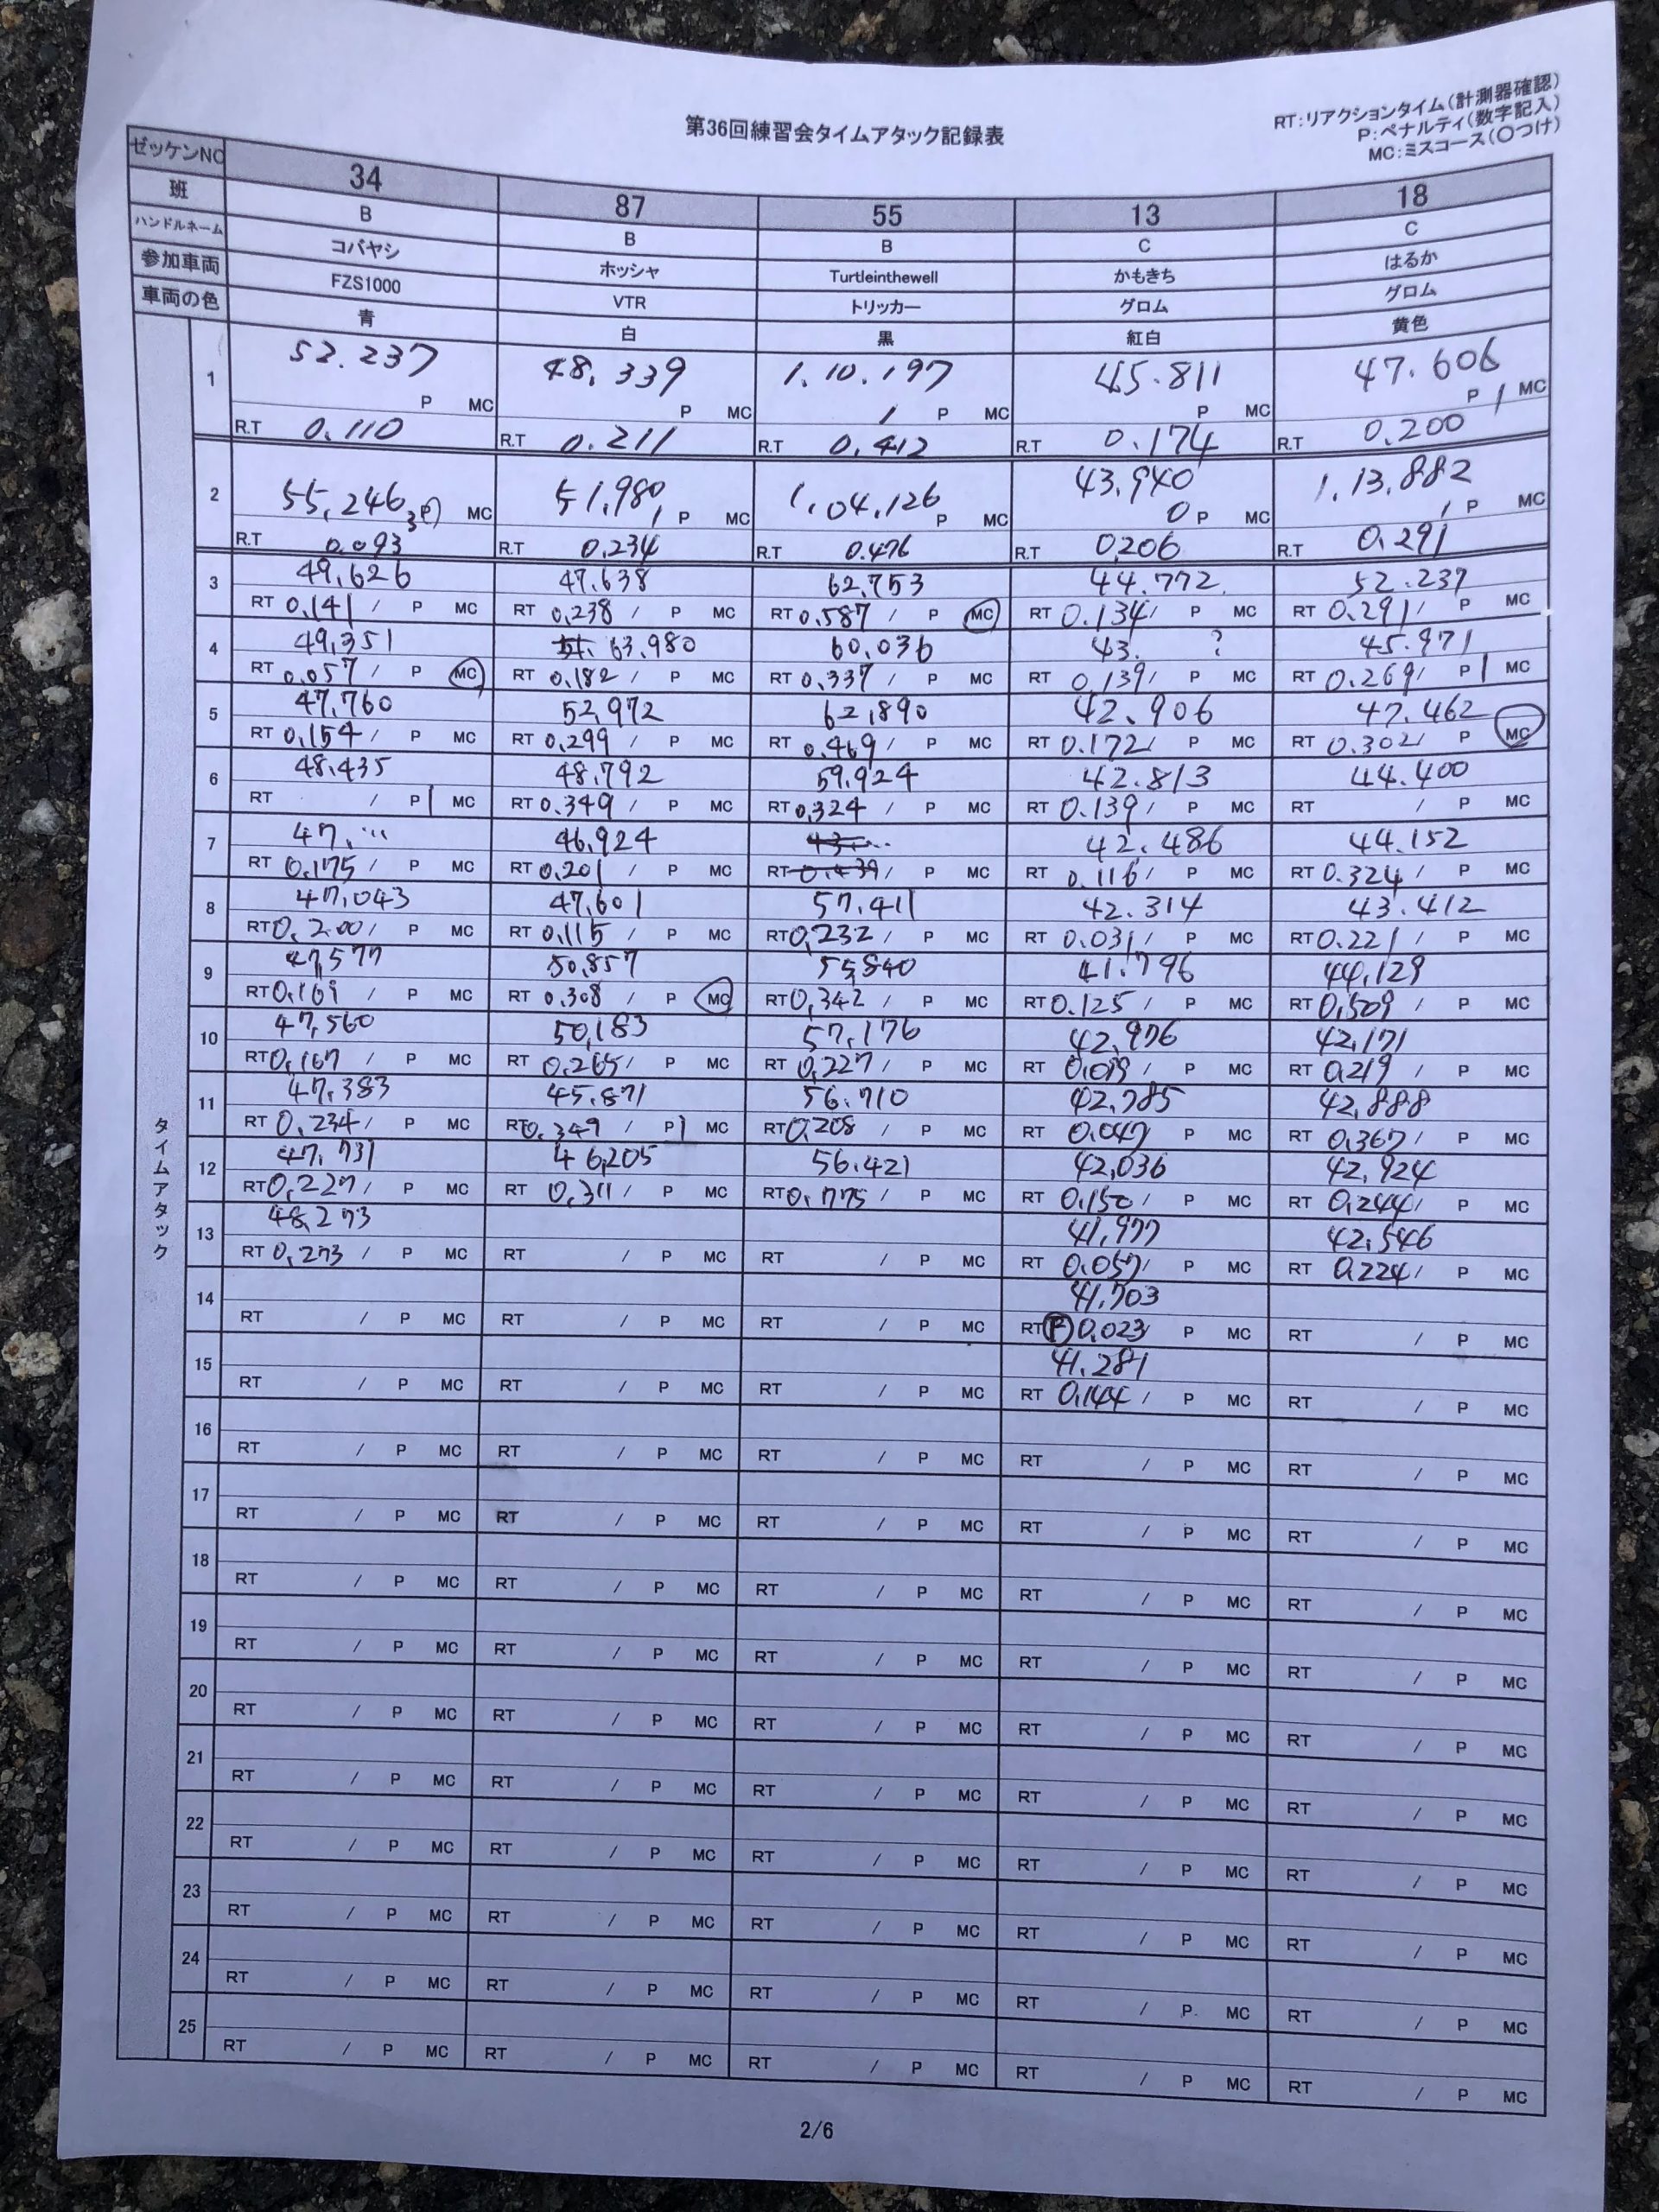 第36回練習会タイムアタック記録表
RT:リアクションタイム(計測器確認)
P:ペナルティ(数字記入)
MC:ミスコース(〇つけ)
ゼッケンNO 34 87 55 13 18
班 B B B C C
ハンドルネーム コバヤシ ホッシャ Turtleinthewell かもきち はるか
参加車両 FZS1000 VTR トリッカー グロム グロム
車両の色 青 白 黒 紅白 黄色
タイムアタック
1 52.237 48.339 1.10.197 45.811 47.606
P MC P MC 1 P MC P MC P 1 MC
R.T 0.110 R.T 0.211 R.T 0.412 R.T 0.174 R.T 0.200
2 55.246 51.980 1.04.126 43.940 1.13.882
3P MC 1 P MC P MC 0 P MC 1 P MC
R.T 0.093 R.T 0.234 R.T 0.476 R.T 0.206 R.T 0.291
3 49.626 47.638 62.753 44.772 52.237
RT 0.141 / P MC RT 0.238 / P MC RT 0.587 / P MC RT 0.134 / P MC RT 0.291 / P MC
4 49.351 63.980 60.036 43. ? 45.971
RT 0.057 / P MC RT 0.182 / P MC RT 0.337 / P MC RT 0.139 / P MC RT 0.269 / P 1 MC
5 47.760 52.972 62.890 42.906 47.462
RT 0.154 / P MC RT 0.299 / P MC RT 0.469 / P MC RT 0.172 / P MC RT 0.302 / P MC
6 48.435 48.792 59.924 42.813 44.400
RT / P 1 MC RT 0.349 / P MC RT 0.324 / P MC RT 0.139 / P MC RT / P MC
7 47.… 46.924 43.… 42.486 44.152
RT 0.175 / P MC RT 0.201 / P MC RT 0.439 / P MC RT 0.116 / P MC RT 0.324 / P MC
8 47.043 47.601 57.411 42.314 43.412
RT 0.200 / P MC RT 0.115 / P MC RT 0.232 / P MC RT 0.031 / P MC RT 0.221 / P MC
9 47.577 50.857 55.840 41.796 44.129
RT 0.161 / P MC RT 0.308 / P MC RT 0.342 / P MC RT 0.125 / P MC RT 0.509 / P MC
10 47.560 50.183 57.176 42.976 42.171
RT 0.167 / P MC RT 0.265 / P MC RT 0.227 / P MC RT / P MC RT 0.219 / P MC
11 47.383 45.871 56.710 42.785 42.888
RT 0.234 / P MC RT 0.349 / P 1 MC RT 0.208 / P MC RT 0.047 P MC RT 0.367 / P MC
12 47.731 46.205 56.421 42.036 42.924
RT 0.227 / P MC RT 0.311 / P MC RT 0.775 / P MC RT 0.150 / P MC RT 0.244 / P MC
13 48.273 41.977 42.546
RT 0.273 / P MC RT / P MC RT / P MC RT 0.057 / P MC RT 0.224 / P MC
14 41.703
RT / P MC RT / P MC RT / P MC RT F 0.023 / P MC RT / P MC
15 41.281
RT / P MC RT / P MC RT / P MC RT 0.144 / P MC RT / P MC
16
RT / P MC RT / P MC RT / P MC RT / P MC RT / P MC
17
RT / P MC RT / P MC RT / P MC RT / P MC RT / P MC
18
RT / P MC RT / P MC RT / P MC RT / P MC RT / P MC
19
RT / P MC RT / P MC RT / P MC RT / P MC RT / P MC
20
RT / P MC RT / P MC RT / P MC RT / P MC RT / P MC
21
RT / P MC RT / P MC RT / P MC RT / P MC RT / P MC
22
RT / P MC RT / P MC RT / P MC RT / P MC RT / P MC
23
RT / P MC RT / P MC RT / P MC RT / P MC RT / P MC
24
RT / P MC RT / P MC RT / P MC RT / P MC RT / P MC
25
RT / P MC RT / P MC RT / P MC RT / P MC RT / P MC
2/6